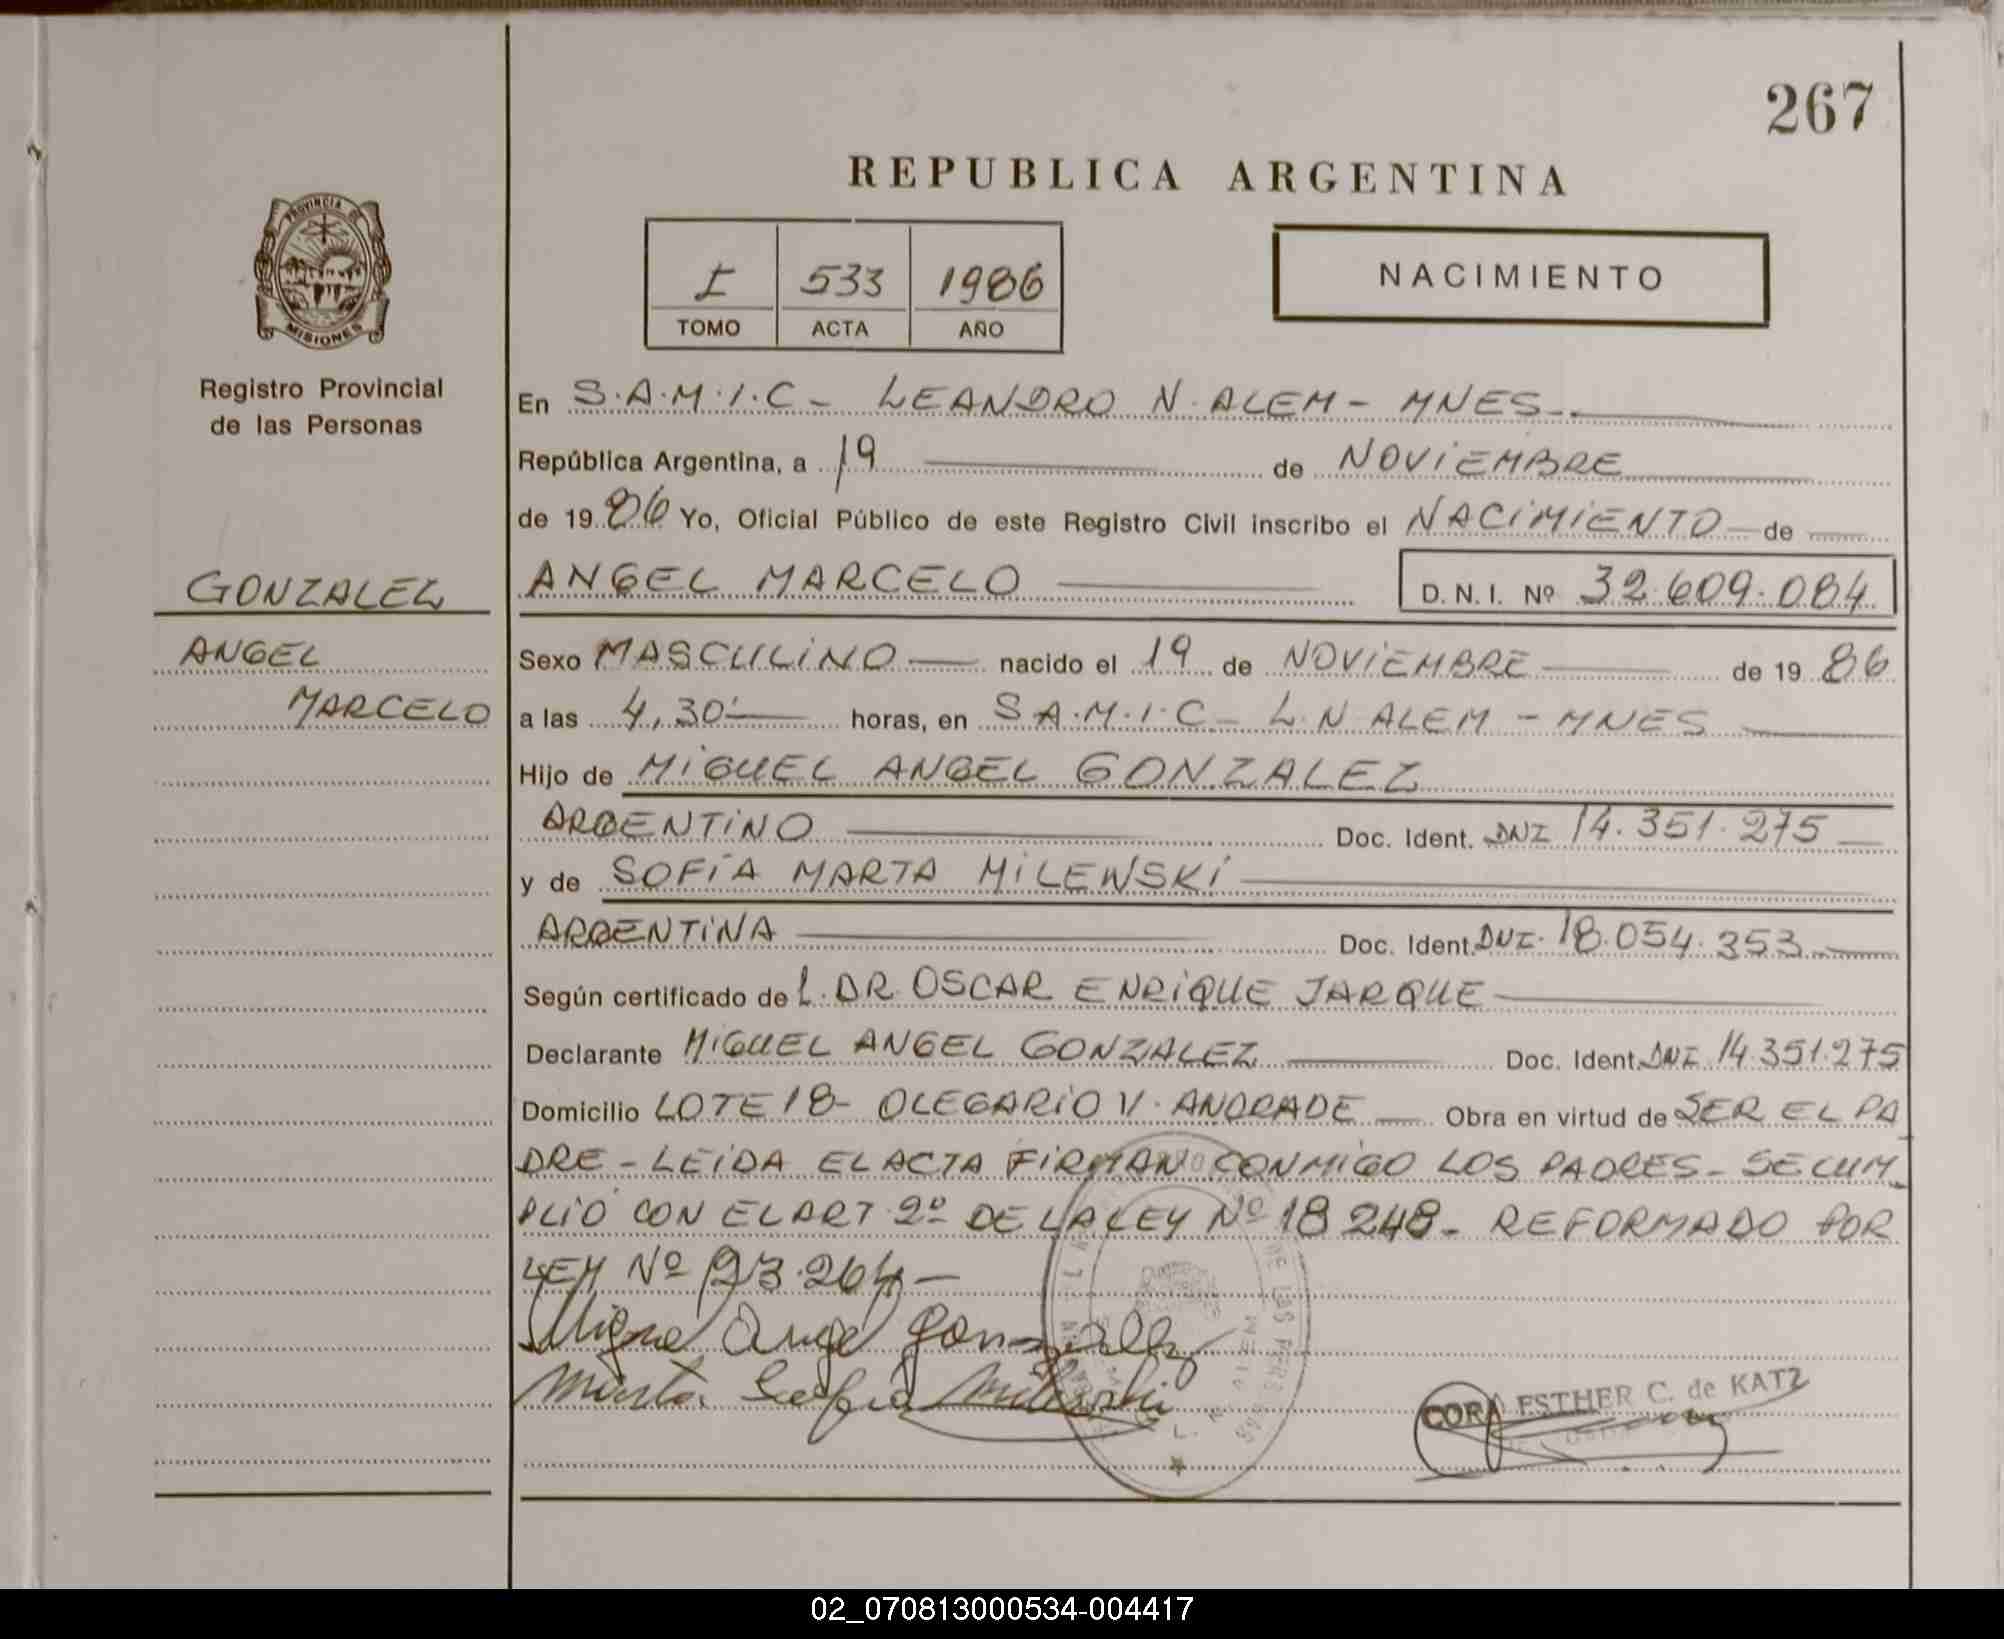 267
REPUBLICA ARGENTINA
PROVINCIA DE
MISIONES
Registro Provincial
de las Personas
I 533 1986
TOMO ACTA AÑO
NACIMIENTO
En S.A.M.I.C - LEANDRO N. ALEM - MNES
República Argentina, a 19 de NOVIEMBRE
de 1986 Yo, Oficial Público de este Registro Civil inscribo el NACIMIENTO de
GONZALEZ
ANGEL
MARCELO
ANGEL MARCELO D. N. I. Nº 32.609.084
Sexo MASCULINO nacido el 19 de NOVIEMBRE de 19 86
a las 4,30 horas, en S.A.M.I.C - L.N ALEM - MNES
Hijo de MIGUEL ANGEL GONZALEZ
ARGENTINO Doc. Ident. DNI 14.351.275
y de SOFÍA MARTA MILEWSKI
ARGENTINA Doc. Ident. DNI. 18.054.353
Según certificado de L. DR. OSCAR ENRIQUE JARQUE
Declarante MIGUEL ANGEL GONZALEZ Doc. Ident. DNI 14.351.275
Domicilio LOTE 18 - OLEGARIO V. ANDRADE Obra en virtud de SER EL PA
DRE - LEIDA EL ACTA FIRMAN CONMIGO LOS PADRES - SE CUM
PLIÓ CON EL ART. 2º DE LA LEY Nº 18 248 - REFORMADO POR
LEY Nº 23.264 -
Miguel Angel Gonzalez
Marta Sofia Milewski
DE LAS PERSONAS
CORA ESTHER C. de KATZ
02_070813000534-004417